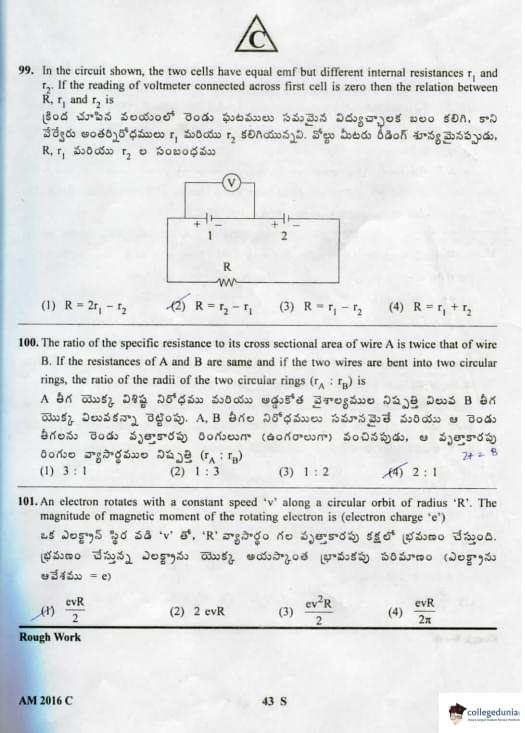 C
99. In the circuit shown, the two cells have equal emf but different internal resistances r₁ and
r₂. If the reading of voltmeter connected across first cell is zero then the relation between
R, r₁ and r₂ is
క్రింద చూపిన వలయంలో రెండు ఘటములు సమమైన విద్యుచ్ఛాలక బలం కలిగి, కాని
వేర్వేరు అంతర్నిరోధములు r₁ మరియు r₂ కలిగియున్నవి. వోల్టు మీటరు రీడింగ్ శూన్యమైనప్పుడు,
R, r₁ మరియు r₂ ల సంబంధము
V
+ − + −
1 2
R
(1) R = 2r₁ − r₂ (2) R = r₂ − r₁ (3) R = r₁ − r₂ (4) R = r₁ + r₂
100. The ratio of the specific resistance to its cross sectional area of wire A is twice that of wire
B. If the resistances of A and B are same and if the two wires are bent into two circular
rings, the ratio of the radii of the two circular rings (r_A : r_B) is
A తీగ యొక్క విశిష్ట నిరోధము మరియు అడ్డుకోత వైశాల్యముల నిష్పత్తి విలువ B తీగ
యొక్క విలువకన్నా రెట్టింపు. A, B తీగల నిరోధములు సమానమైతే మరియు ఆ రెండు
తీగలను రెండు వృత్తాకారపు రింగులుగా (ఉంగరాలుగా) వంచినపుడు, ఆ వృత్తాకారపు
రింగుల వ్యాసార్థముల నిష్పత్తి (r_A : r_B)
(1) 3 : 1 (2) 1 : 3 (3) 1 : 2 (4) 2 : 1
101. An electron rotates with a constant speed ‘v’ along a circular orbit of radius ‘R’. The
magnitude of magnetic moment of the rotating electron is (electron charge ‘e’)
ఒక ఎలక్ట్రాన్ స్థిర వడి ‘v’ తో, ‘R’ వ్యాసార్థం గల వృత్తాకారపు కక్షలో భ్రమణం చేస్తుంది.
భ్రమణం చేస్తున్న ఎలక్ట్రాను యొక్క అయస్కాంత భ్రామకపు పరిమాణం (ఎలక్ట్రాను
ఆవేశము = e)
(1) evR/2 (2) 2 evR (3) ev²R/2 (4) evR/2π
Rough Work
AM 2016 C 43 S
collegedunia